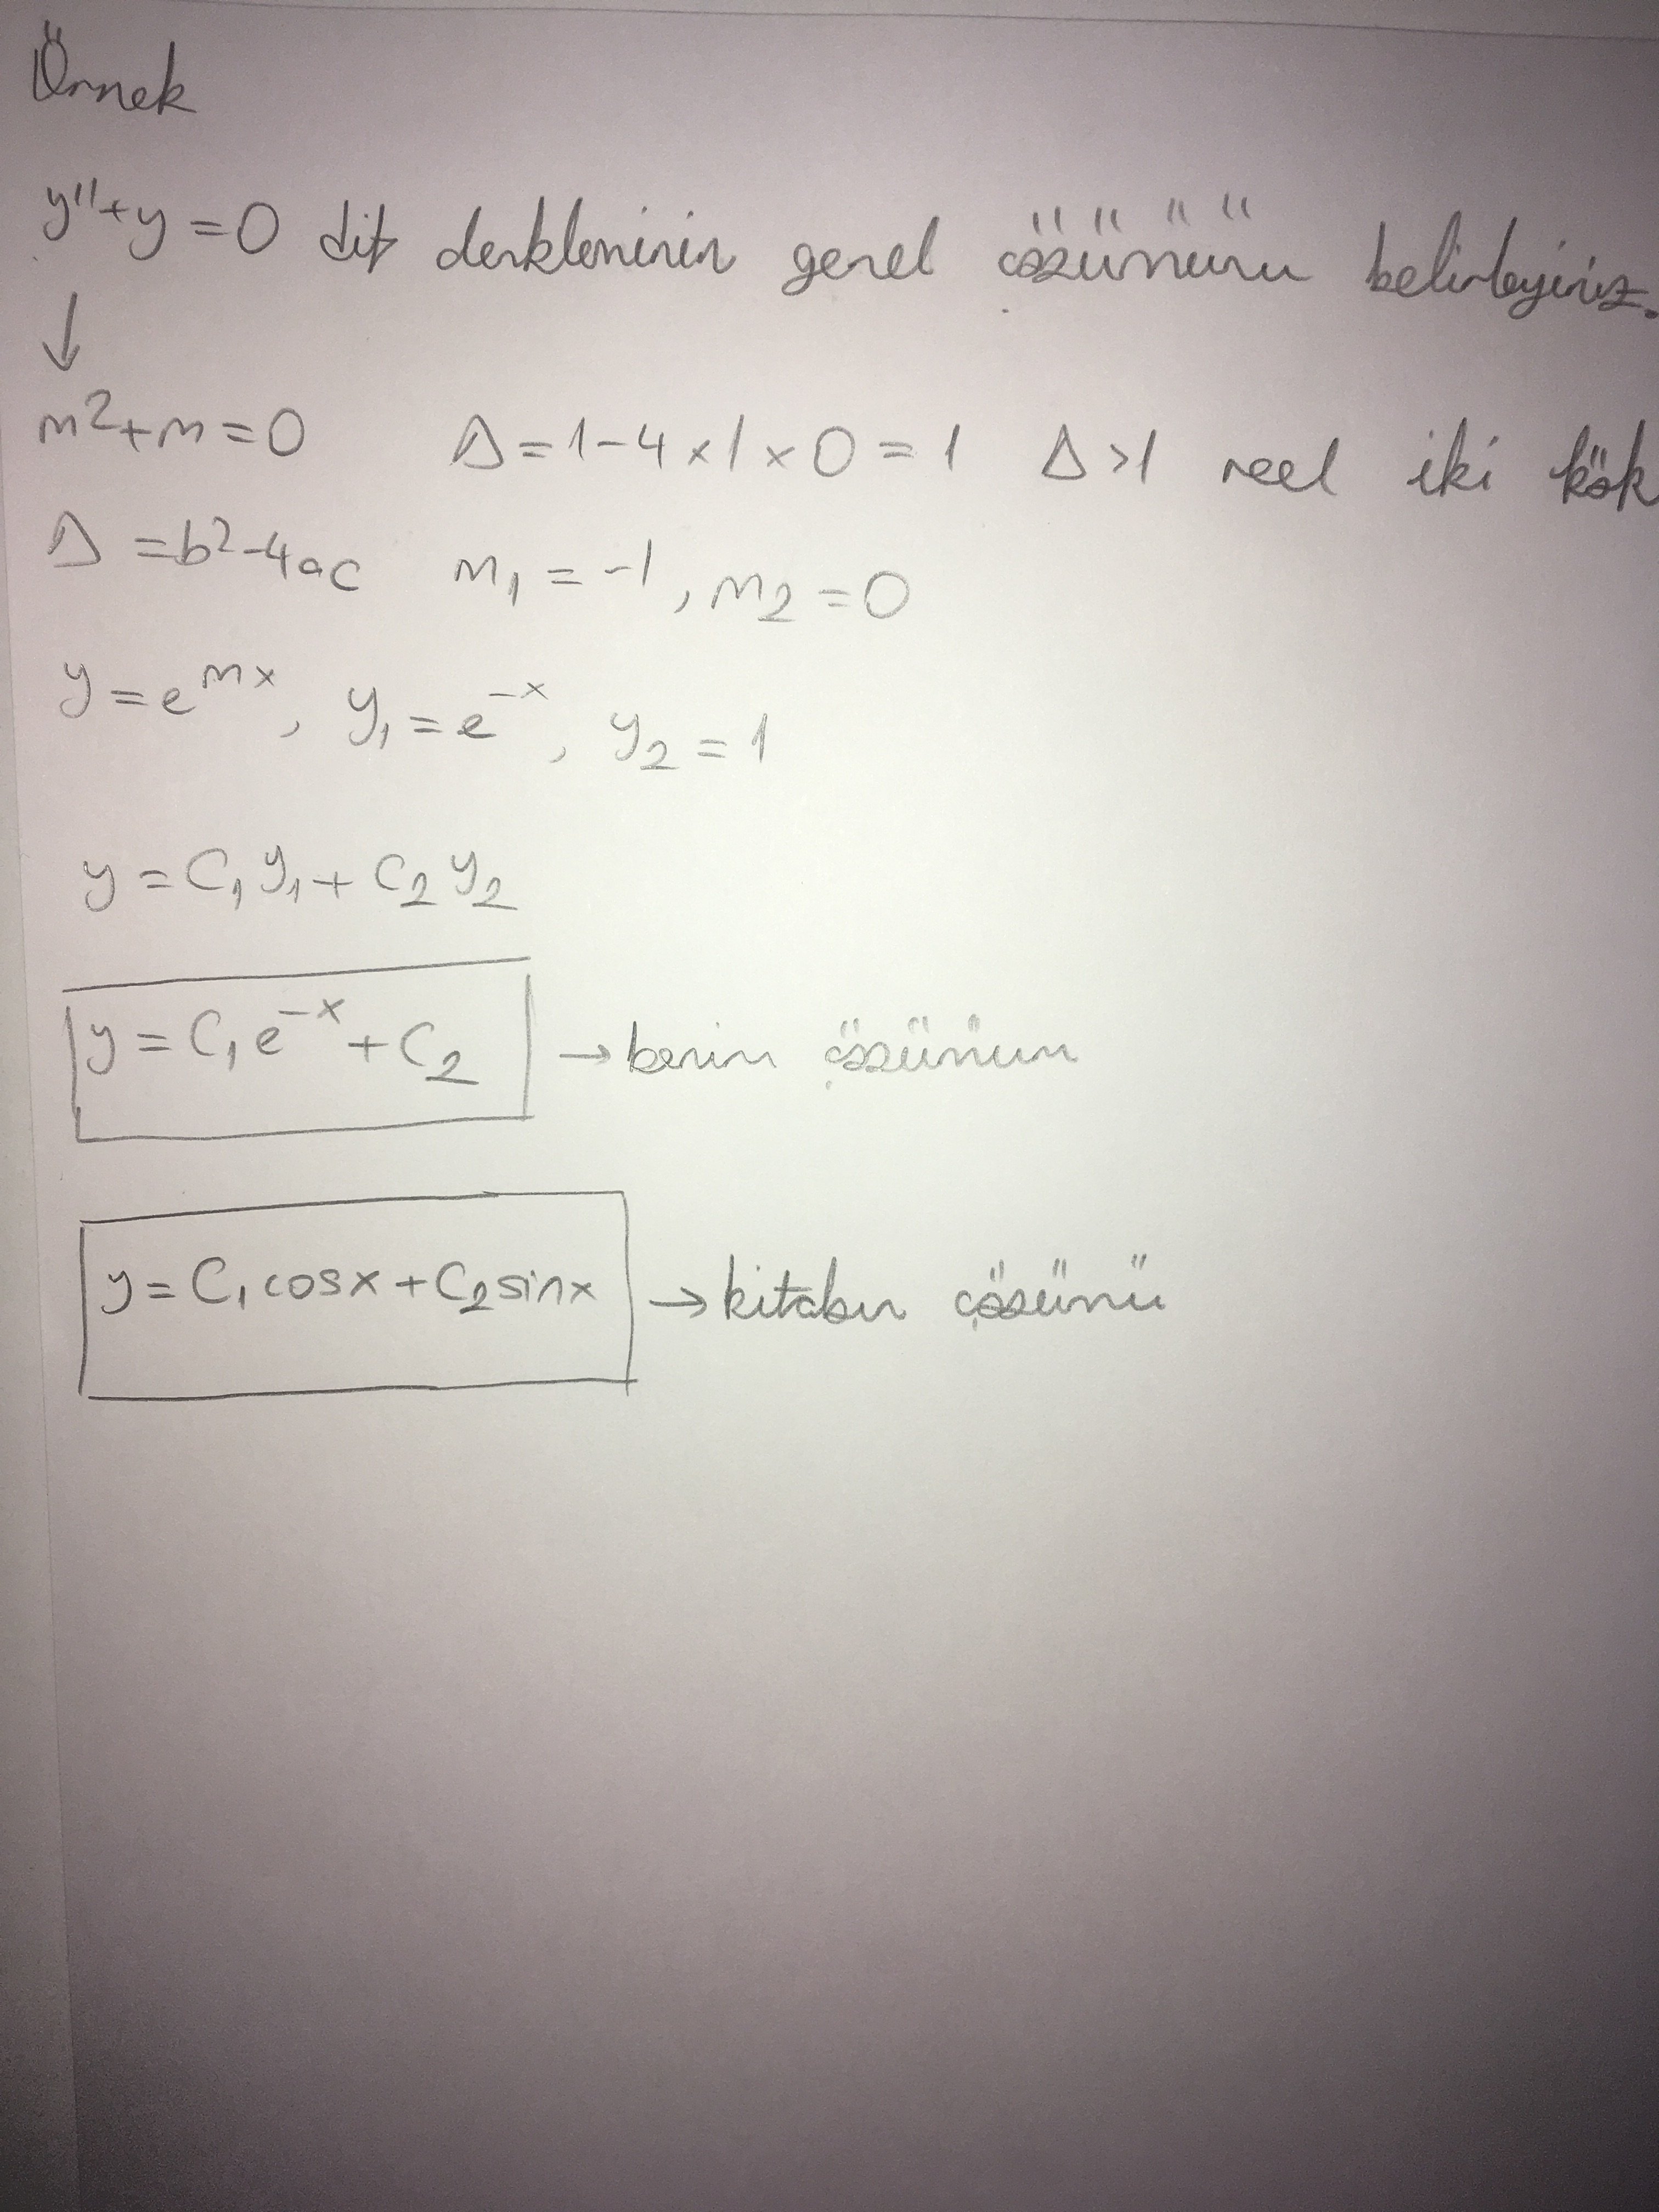 Örnek
y''+y=0 dif denkleminin genel çözümünü belirleyiniz.
↓
m²+m=0 Δ=1-4×1×0=1 Δ>1 reel iki kök
Δ=b²-4ac m₁=-1, m₂=0
y=e^mx, y₁=e^-x, y₂=1
y=C₁y₁+C₂y₂
y=C₁e^-x+C₂ →benim çözümüm
y=C₁cosx+C₂sinx →kitabın çözümü